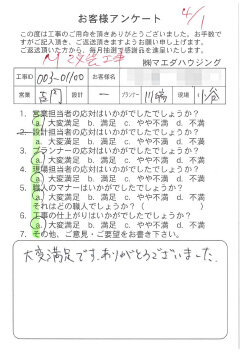 お客様アンケート
4/1
この度は工事のご用命を頂きありがとうございました。お手数で
すがご記入頂き、ご返送頂きますようお願い申し上げます。
ご返送頂いた方から、毎月抽選で感謝品を進呈いたします。
㈱マエダハウジング
工事ID 003-01100 お客様名
営業 設計 ー プランナー 川端 現場 小倉
1. 営業担当者の応対はいかがでしたでしょうか?
a) 大変満足 b) 満足 c) やや不満 d) 不満
2. 設計担当者の応対はいかがでしたでしょうか?
a) 大変満足 b) 満足 c) やや不満 d) 不満
3. プランナーの応対はいかがでしたでしょうか?
a) 大変満足 b) 満足 c) やや不満 d) 不満
4. 現場担当者の応対はいかがでしたでしょうか?
a) 大変満足 b) 満足 c) やや不満 d) 不満
5. 職人のマナーはいかがでしたでしょうか?
a) 大変満足 b) 満足 c) やや不満 d) 不満
それはどの職人でしょうか?( )
6. 工事の仕上がりはいかがでしたでしょうか?
a) 大変満足 b) 満足 c) やや不満 d) 不満
7. その他、ご意見・ご要望をお書き下さい。
大変満足です。ありがとうございました。